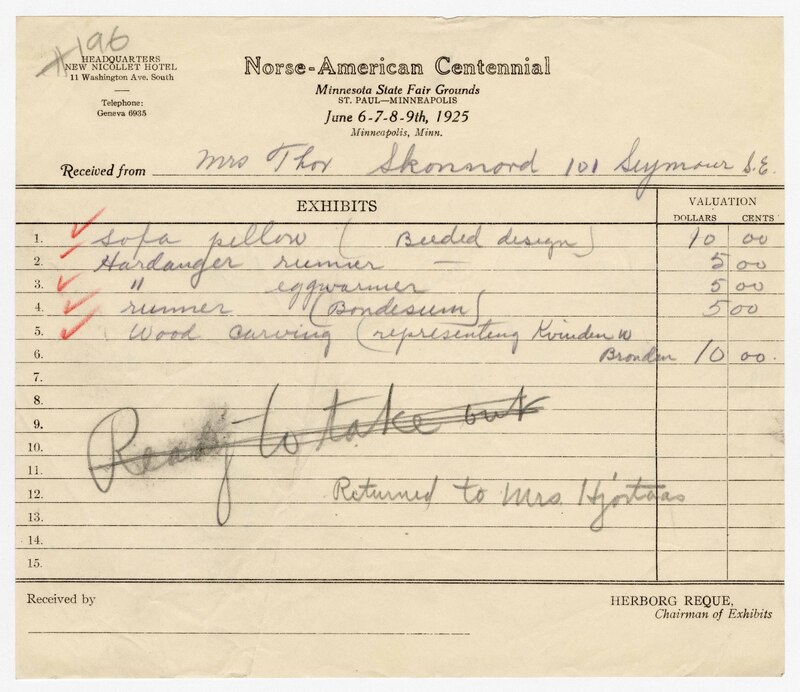 #196
HEADQUARTERS
NEW NICOLLET HOTEL
11 Washington Ave. South
Telephone:
Geneva 6935
Norse-American Centennial
Minnesota State Fair Grounds
ST. PAUL—MINNEAPOLIS
June 6-7-8-9th, 1925
Minneapolis, Minn.
Received from Mrs Thor Skonnord 101 Seymour S.E.
EXHIBITS VALUATION
DOLLARS CENTS
1. Sofa pellow (Beeded design) 10 00
2. Hardanger runner — 5 00
3. " eggwarmer 5 00
4. runner (Bondesum) 5 00
5. Wood carving (representing Kvinden w
6. Bronden 10 00.
7.
8.
9. Ready to take out
10.
11.
12. Returned to Mrs Hjortaas
13.
14.
15.
Received by
HERBORG REQUE,
Chairman of Exhibits